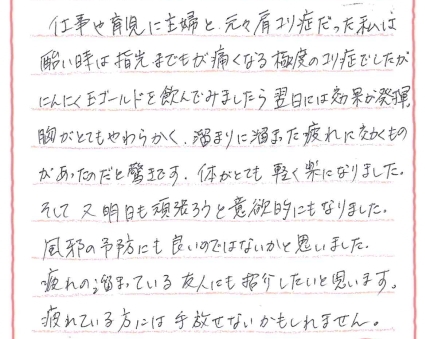 仕事や育児に主婦と、元々肩コリ症だった私は
酷い時は指先までもが痛くなる極度のコリ症でしたが
にんにく玉ゴールドを飲んでみましたら翌日には効果が発揮、
胸がとてもやわらかく、溜まりに溜まった疲れに効くもの
があったのだと驚きです。体がとても軽く楽になりました。
そして又明日も頑張ろうと意欲的にもなりました。
風邪の予防にも良いのではないかと思いました。
疲れの溜まっている友人にも紹介したいと思います。
疲れている方には手放せないかもしれません。